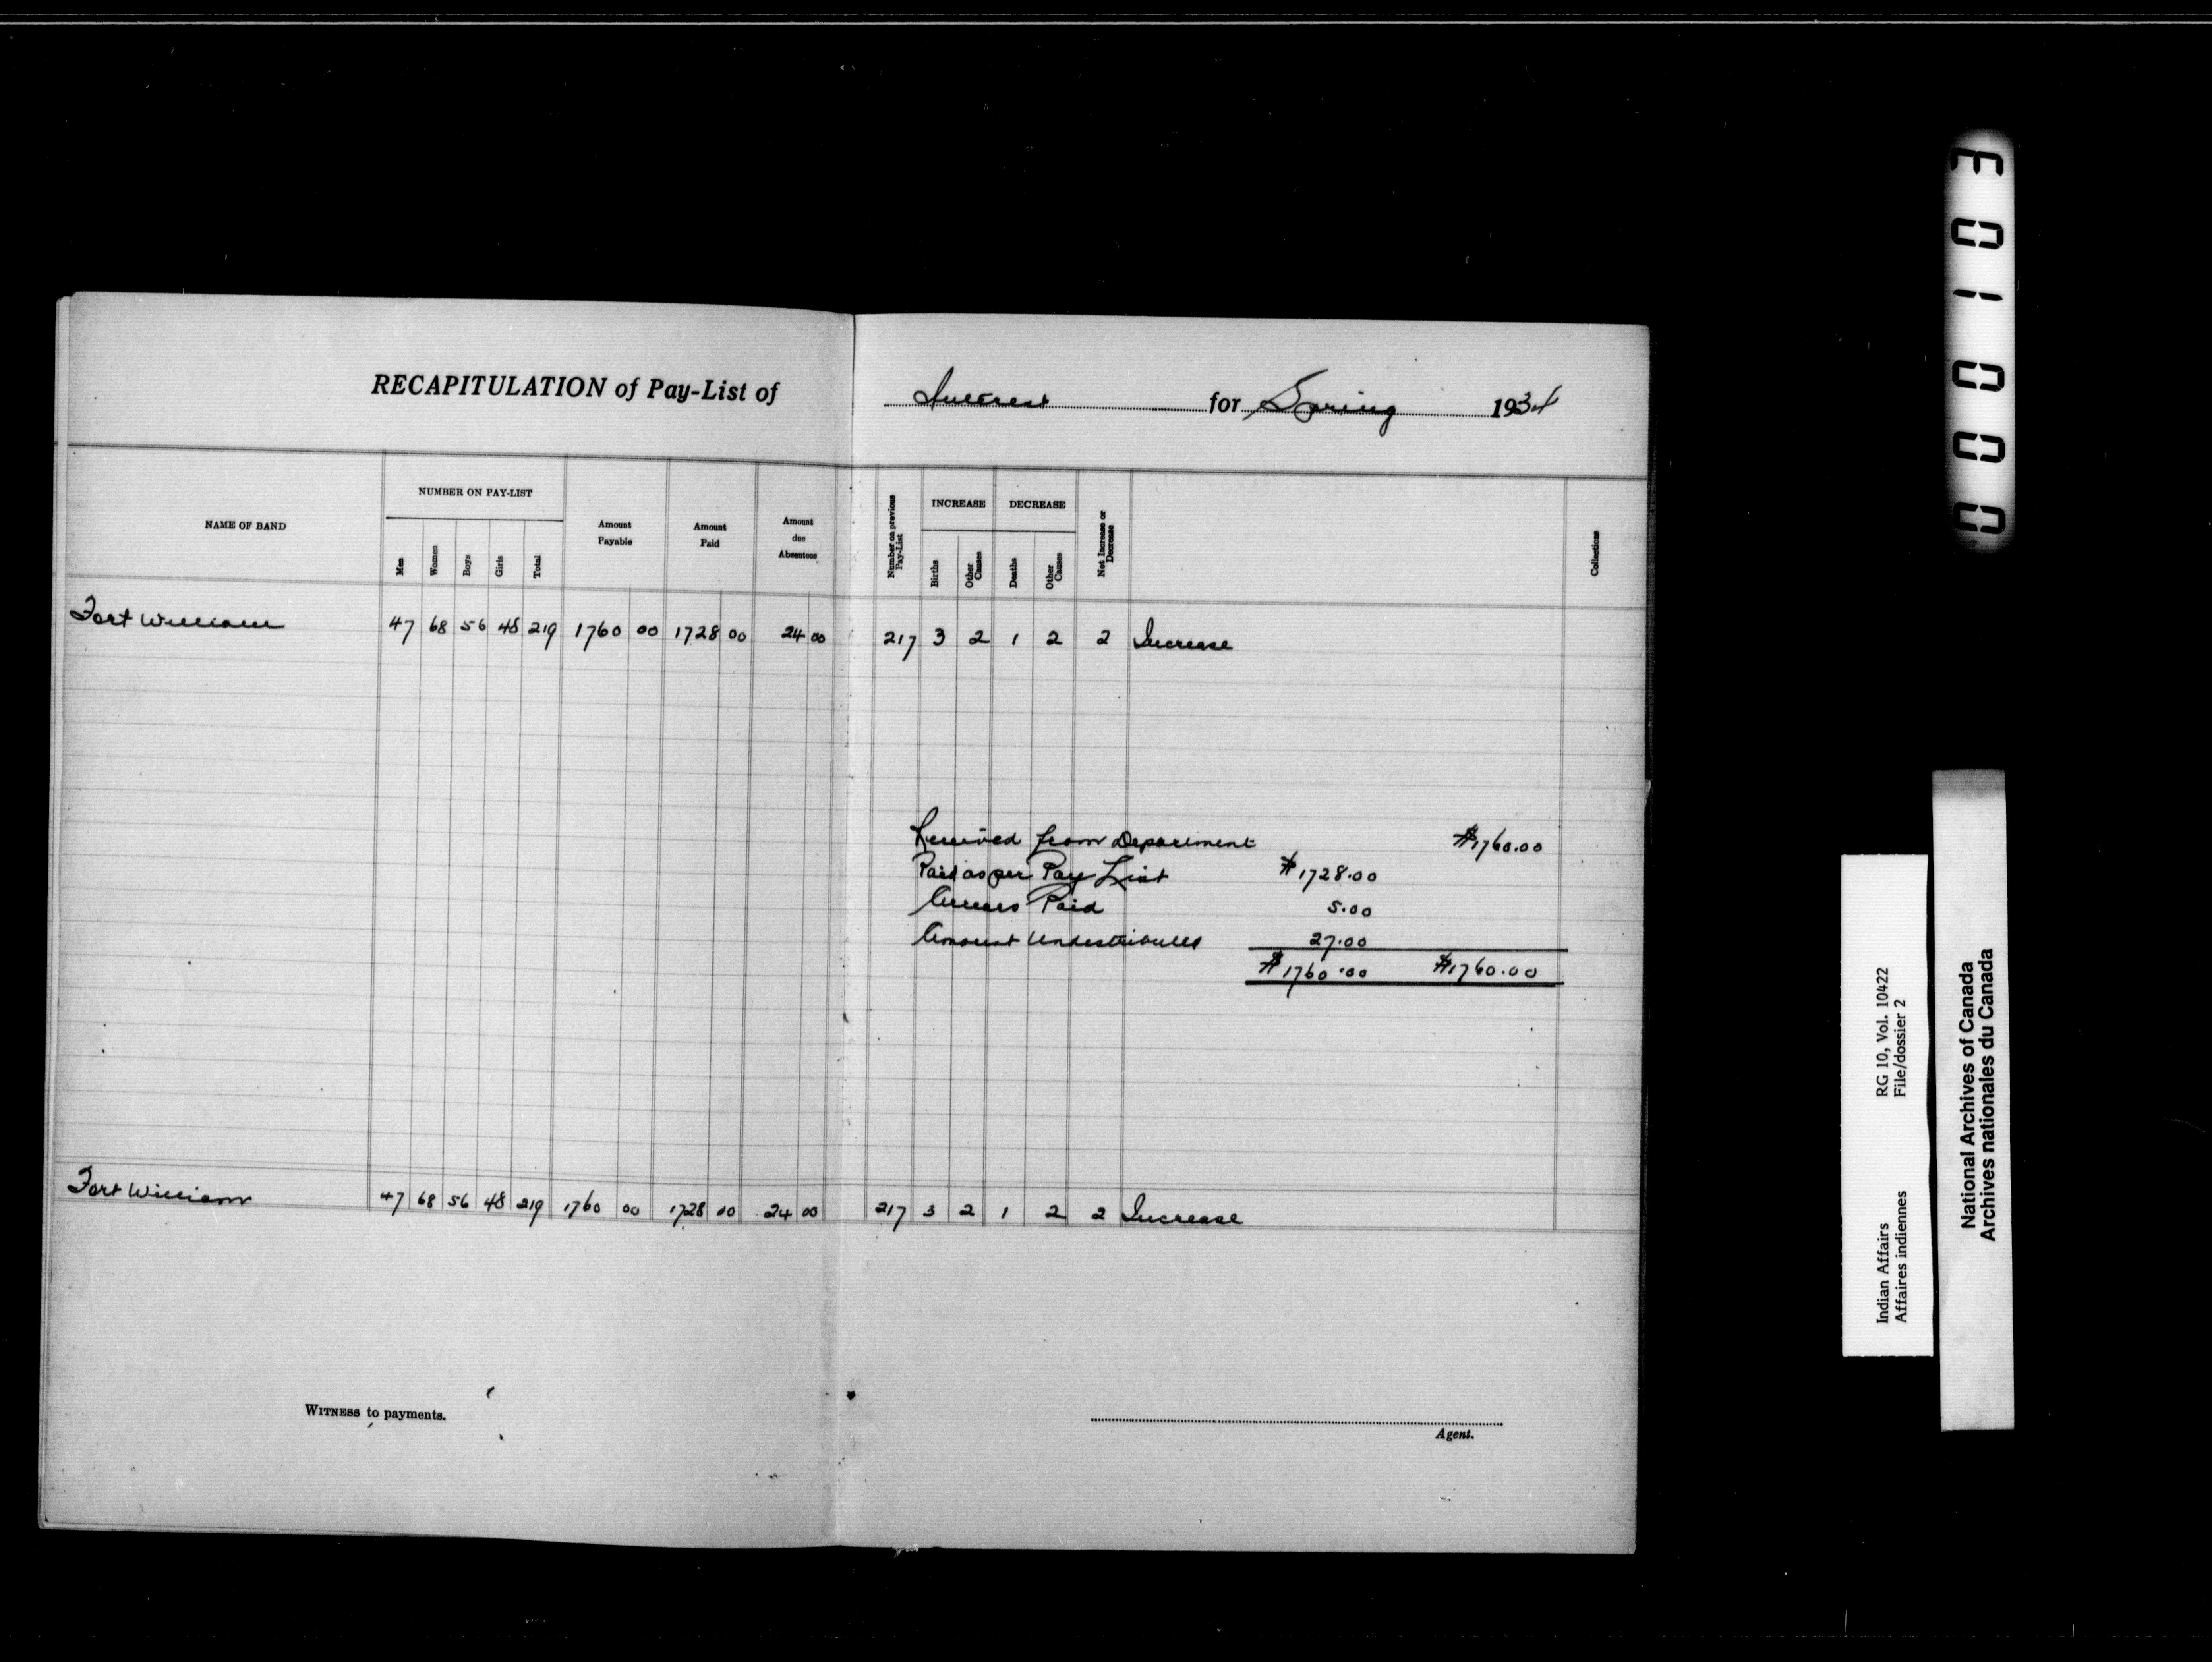 RECAPITULATION of Pay-List of Interest for Spring 1934
NAME OF BAND
NUMBER ON PAY-LIST
Men
Women
Boys
Girls
Total
Amount Payable
Amount Paid
Amount due Absentees
Number on previous Pay-List
INCREASE
Births
Other Causes
DECREASE
Deaths
Other Causes
Net Increase or Decrease
Collections
Fort William 47 68 56 48 219 1760 00 1728 00 24 00 217 3 2 1 2 2 Increase
Received from Department $1760.00
Paid as per Pay List $1728.00
Arrears Paid 5.00
Amount Undistributed 27.00
$1760.00 $1760.00
Fort William 47 68 56 48 219 1760 00 1728 00 24 00 217 3 2 1 2 2 Increase
WITNESS to payments.
Agent.
F01000
Indian Affairs RG 10, Vol. 10422
Affaires indiennes File/dossier 2
National Archives of Canada
Archives nationales du Canada